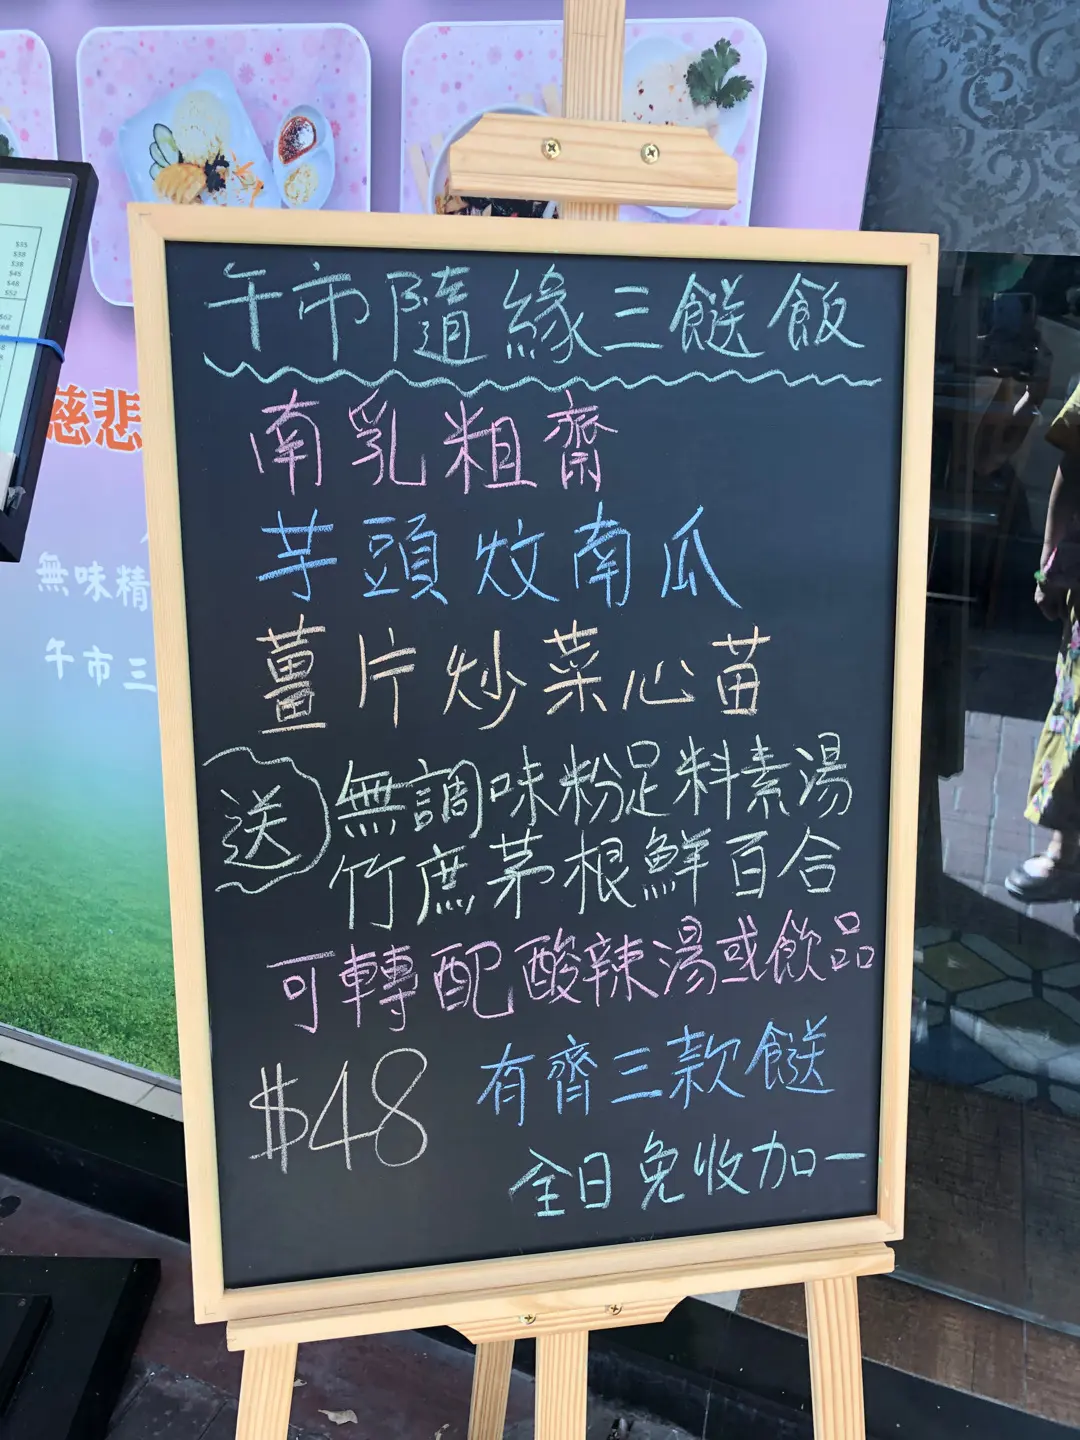 午市隨緣三餸飯
南乳粗齋
芋頭炆南瓜
薑片炒菜心苗
送
無調味粉足料素湯
竹蔗茅根鮮百合
可轉配酸辣湯或飲品
$48
有齊三款餸
全日免收加一
慈悲
無味精
午市三
$35
$38
$38
$45
$48
$52
$62